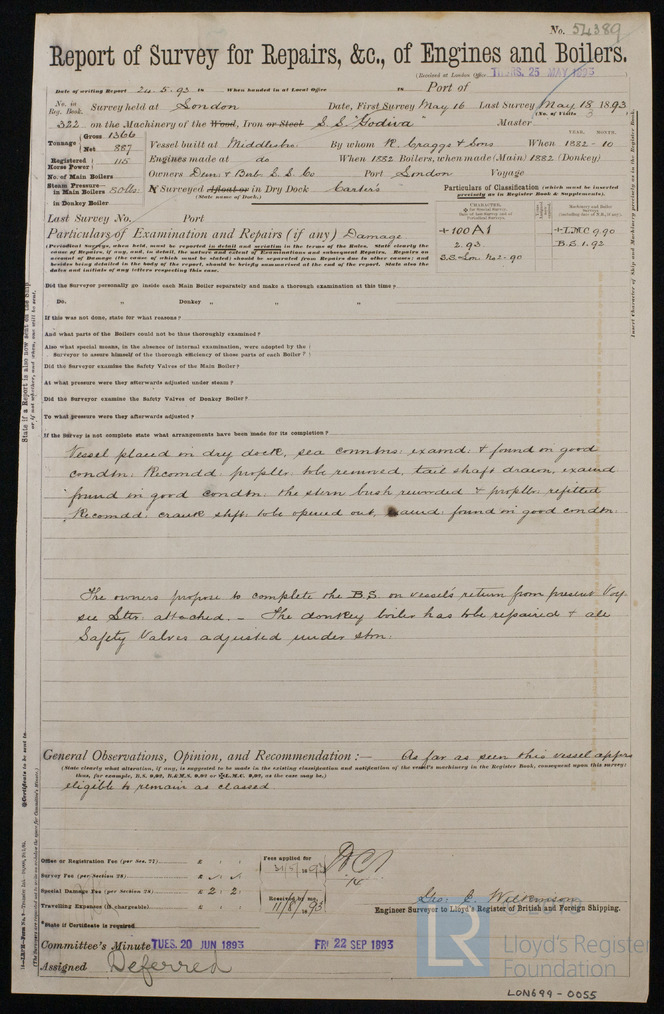 No. 54389
Report of Survey for Repairs, &c., of Engines and Boilers.
(Received at London Office THURS. 25 MAY 1893)
Date of writing Report 24.5.93 to When handed in at Local Office to Port of
No. in Reg. Book. Survey held at London Date, First Survey May 16 Last Survey May 18 1893
(No. of Visits 3)
322 on the Machinery of the Wood, Iron or Steel S.S. "Godiva" Master
Tonnage Gross 1366 Net 887
YEAR. MONTH.
Vessel built at Middlesbro By whom R. Craggs & Sons When 1882-10
Registered Horse Power 115
Engines made at do When 1882 Boilers, when made (Main) 1882 (Donkey)
No. of Main Boilers
Owners Port London Voyage
Steam Pressure in Main Boilers 80 lbs
in Donkey Boiler
If Surveyed Afloat or in Dry Dock Carter's
(State name of Dock.)
Particulars of Classification (which must be inserted precisely as in Register Book & Supplement).
Last Survey No. Port
Particulars of Examination and Repairs (if any) Damage
+100A1
2.93
S.S. Lon. No2-90
+LMC 9.90
B.S. 1.92
(Periodical Surveys, when held, must be reported in detail and seriatim in the terms of the Rules. State clearly the
cause of Repairs, if any, and, in detail, the nature and extent of Examinations and subsequent Repairs. Repairs on
account of Damage (the cause of which must be stated) should be separated from Repairs due to other causes; and
besides being detailed in the body of the report, should be briefly summarised at the end of the report. State also the
dates and initials of any letters respecting this case.)
Did the Surveyor personally go inside each Main Boiler separately and make a thorough examination at this time?
Do. " Donkey " " "
If this was not done, state for what reasons?
And what parts of the Boilers could not be thoroughly examined?
Also what special means, in the absence of internal examination, were adopted by the
Surveyor to assure himself of the thorough efficiency of those parts of each Boiler?
Did the Surveyor examine the Safety Valves of the Main Boiler?
At what pressure were they afterwards adjusted under steam?
Did the Surveyor examine the Safety Valves of Donkey Boiler?
To what pressure were they afterwards adjusted?
If the Survey is not complete state what arrangements have been made for its completion?
Vessel placed in dry dock, sea conntns: examd: & found in good
condtn: Recomdd: propller: to be removed, tail shaft drawn, examd
found in good condtn: the stern bush rewooded & propller: refitted
Recomdd: crank shft: to be opened out, examd: found in good condtn:
The owners propose to complete the B.S. on vessel's return from present Voy
see lttr: attached. — The donkey boiler has to be repaired & all
Safety Valves adjusted under stm:
General Observations, Opinion, and Recommendation :— As far as seen this vessel apprs
(State clearly what alteration, if any, is suggested to be made in the existing classification and notification of the vessel's machinery in the Register Book, consequent upon this survey;
eligible to remain as classed
Office or Registration Fee (per Sec. 27) £ : :
Survey Fee (per Section 28) £ : :
Special Damage Fee (per Section 28) £ 2 : 2 :
Travelling Expenses (if chargeable) £ : :
Fees applied for
Received by me,
11/8/1893
*State if Certificate is required
Geo: C. Wilkinson
Engineer Surveyor to Lloyd's Register of British and Foreign Shipping.
Committee's Minute TUES. 20 JUN 1893 FRI. 22 SEP 1893
Assigned Deferred
LR
Lloyd's Register
Foundation
LON699-0055
State if a Report is also now sent on the Ship,
or if not whether, and when, one will be sent.
Insert Character of Ship and Machinery precisely as in the Register Book.